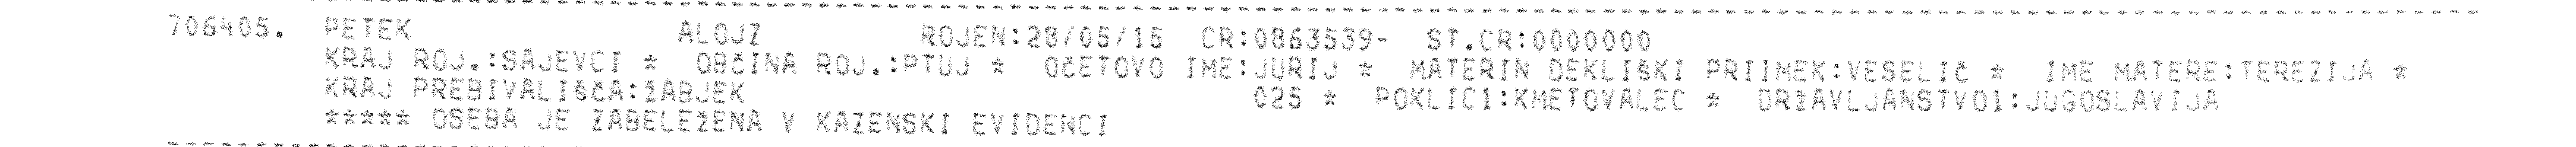 706405. PETEK ALOJZ ROJEN:28/05/15 CR:0863539- ST.CR:0000000
KRAJ ROJ.:SAJEVCI * OBČINA ROJ.:PTUJ * OČETOVO IME:JURIJ * MATERIN DEKLIŠKI PRIIMEK:VESELIČ * IME MATERE:TEREZIJA *
KRAJ PREBIVALIŠČA:ŽABJEK 025 * POKLIC1:KMETOVALEC * DRŽAVLJANSTVO1:JUGOSLAVIJA
***** OSEBA JE ZABELEŽENA V KAZENSKI EVIDENCI